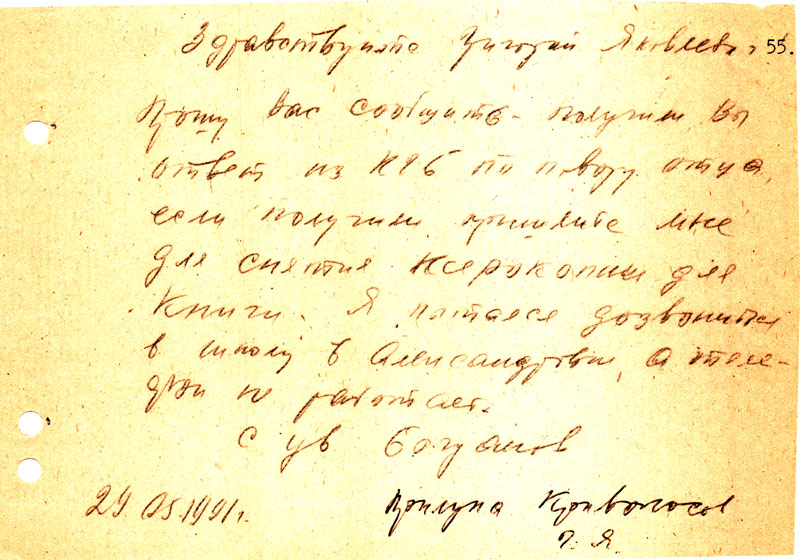 Здравствуйте Григорий Яковлевич 55.
Прошу Вас сообщить получили Вы
ответ из КГБ по поводу отца,
если получили пришлите мне
для снятия ксерокопии для
Книги. Я пытался дозвониться
в школу в Александровки, а теле-
фон не работает.
С ув
29.05.1991г. Кривоносов
Г. Я.